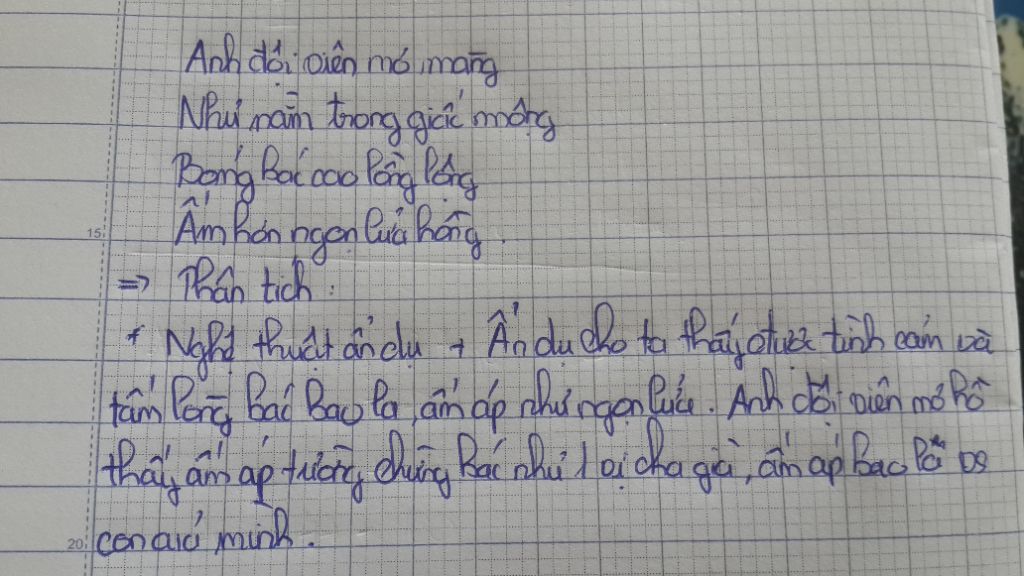 Anh đội viên mơ màng
Như nằm trong giấc mộng
Bóng Bác cao lồng lộng
Ấm hơn ngọn lửa hồng.
15
=> Phân tích:
+ Nghệ thuật ẩn dụ → Ẩn dụ cho ta thấy được tình cảm và
tấm lòng Bác bao la, ấm áp như ngọn lửa. Anh đội viên mơ hồ
thấy ấm áp tưởng chừng Bác như 1 vị cha già, ấm áp bao
con của mình.
20